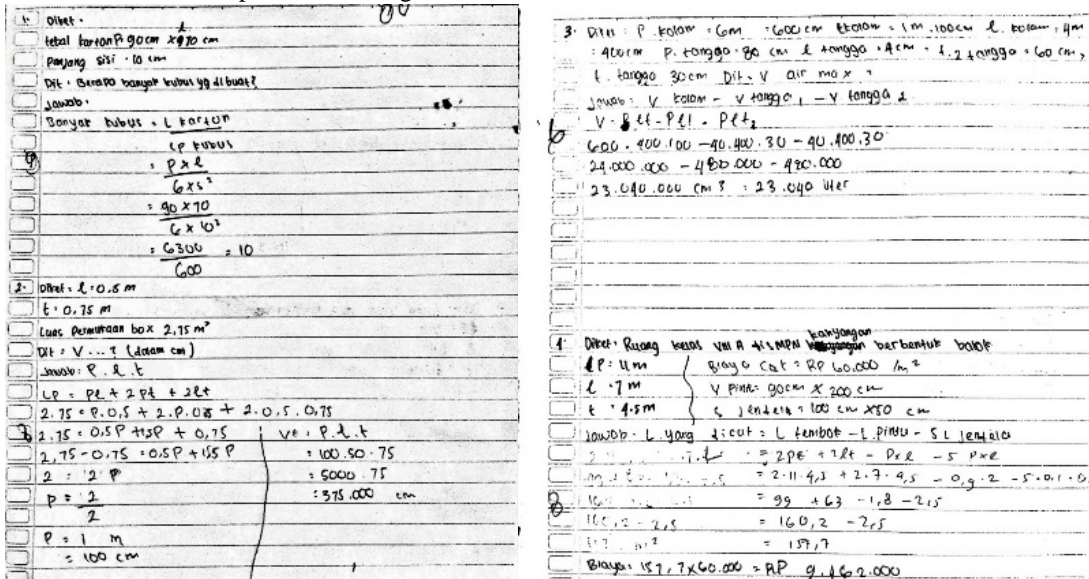 1. Diket.
tebal karton P. 90 cm x 70 cm
Panjang sisi . 10 cm
Dit . Berapa banyak kubus yg dibuat?
Jawab.
Banyak kubus = L karton
LP kubus
= P x l
6 x s²
= 90 x 70
6 x 10²
= 6300 = 10
600
2. Diket : l = 0.5 m
t = 0,75 m
Luas Permukaan box 2,75 m²
Dit = V ... ? (dalam cm)
Jawab : P. l. t
LP = Pl + 2 pt + 2lt
2.75 = P. 0,5 + 2. P. 0,75 + 2. 0,5. 0,75
2.75 = 0,5 P + 1,5P + 0,75
2,75 - 0,75 = 0,5P + 1,5 P
2 = 2 P
P = 2
2
P = 1 m
= 100 cm
Vt = P. l. t
= 100. 50 . 75
= 5000 . 75
= 375.000 cm
3. P. kolam = 6m = 600 cm t kolam = 1m . 100 cm l. kolam = 4m
= 400 cm P. tangga . 80 cm l tangga = 4cm = t. 2 tangga = 60 cm,
t. tangga 30 cm Dit. V air max ?
Jawab : V kolam - V tangga 1 - V tangga 2
V . Plt - Plt . Plt₂
600 . 400 . 100 - 40. 400 . 30 - 40. 400. 30
24.000.000 - 480.000 - 480.000
23.040.000 cm 3 = 23.040 liter
Diket : Ruang kelas VIII A di SMPN kahyangan berbentuk balok
P = 11 m
Biaya cat = RP 60.000 /m²
l . 7 m
V pintu = 90cm x 200 cm
t = 4.5m
5 jendela = 100 cm x 50 cm
Jawab . L. yang dicat = L tembok - L pintu - 5 L jendela
= 2pt + 2lt - Pxl - 5 Pxl
= 2.11.4,5 + 2.7.4,5 - 0,9.2 - 5.0,1.0,
= 99 + 63 - 1,8 - 2,5
160,2 - 2,5 = 160,2 - 2,5
= 157,7
Biaya = 157,7 x 60.000 = RP 9.462.000